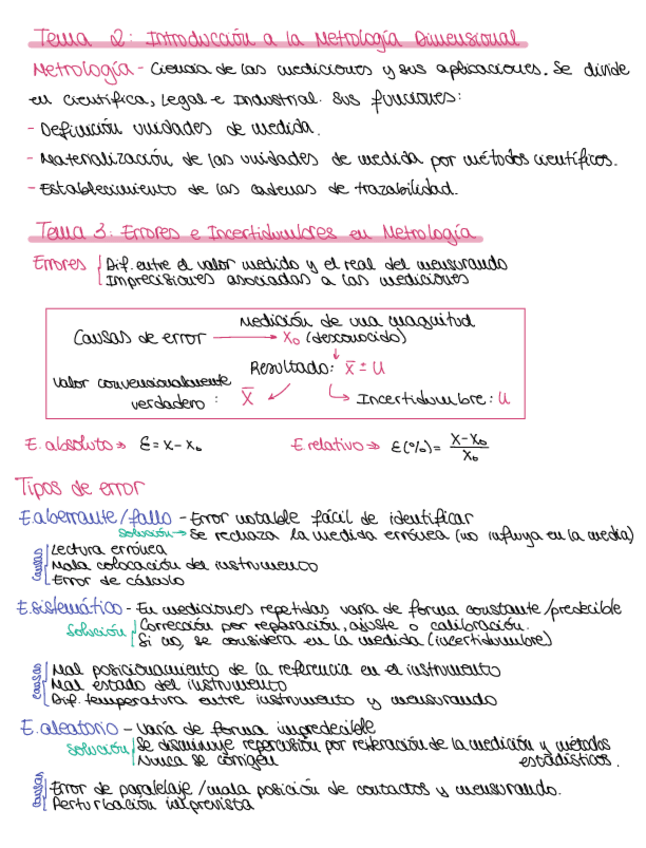 Tema 2: Introducción a la Metrología Dimensional
Metrología - Ciencia de las mediciones y sus aplicaciones. Se divide
en científica, Legal e Industrial. Sus funciones:
- Definición unidades de medida.
- Materialización de las unidades de medida por métodos científicos.
- Establecimiento de las cadenas de trazabilidad.
Tema 3: Errores e Incertidumbres en Metrología
Errores Dif. entre el valor medido y el real del mensurando
Imprecisiones asociadas a las mediciones
Medición de una magnitud
Causas de error → X₀ (desconocido)
Resultado: x̄ ± U
Valor convencionalmente
verdadero : X̄
Incertidumbre: U
E. absoluto → Ɛ = X - X₀
E. relativo → Ɛ(%) = X-X₀ / X₀
Tipos de error
E aberrante/fallo - Error notable fácil de identificar
Solución → Se rechaza la medida errónea (no influya en la media)
Causas Lectura errónea
Mala colocación del instrumento
Error de cálculo
E. sistemático - En mediciones repetidas varía de forma constante/predecible
Solución Corrección por reparación, ajuste o calibración.
Si no, se considera en la medida (incertidumbre)
Causas Mal posicionamiento de la referencia en el instrumento
Mal estado del instrumento
Dif. temperatura entre instrumento y mensurando
E. aleatorio - Varía de forma impredecible
Solución Se disminuye repercusión por reiteración de la medición y métodos
estadísticos.
Nunca se corrigen
Causas Error de paralelaje / mala posición de contactos y mensurando.
Perturbación imprevista